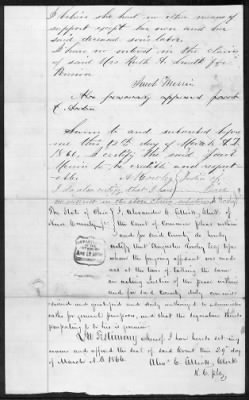 I believe she had no other means of
support except her own and her
said deceased son's labor.
I have no interest in the claim
of said Mrs Ruth H. Smith for
Pension
Janet Merrin
Also personally appeared
Sworn to and subscribed before
me this day of March A.D.
1866. I certify the said Janet
Merrin to be credible and respect-
able.
I do also certify that I have
no interest in the above claim
The State of Ohio } I, Alexander C. Elliott, Clerk
County ss } of the Court of Common Pleas within
and for said County do hereby
certify that before
whom the foregoing affidavit was made
was at the time of taking the same
an acting Justice of the peace within
and for said County, duly commis-
sioned and qualified and duly authorized to administer
oaths for general purposes, and that the signature thereto
purporting to be his is genuine
In Testimony whereof I have hereto set my
name and affixed the seal of said Court this 29th day
of March A.D. 1866. Alex C. Elliott, Clerk